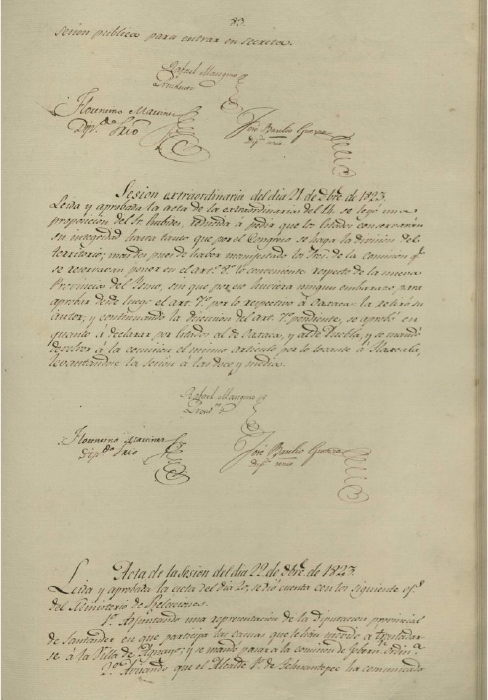 83.
sesion publica para entrar en secreta.
Rafael Mangino
Presidente
Florentino Martinez
Dip.do Srio
José Basilio Guerra
dip. srio
Sesion extraordinaria del dia 21 de Dbre. de 1823.
Leida y aprobada la acta de la extraordinaria del 14 se leyó una
proposicion del Sr. reducida á pedir que los estados conservarán
su integridad hasta tanto que por el Congreso se haga la division del
territorio; mas despues de haber manifestado los Sres. de la comision qe.
se reservaran poner en el art.o lo conveniente respecto de la nueva
Provincia del Ismo, sin que por eso hubiera ningun embarazo para
aprobar desde luego el art. 7.o por lo respectivo á Oaxaca, la retiró su
autor; y continuando la discusion del art. 7.o pendiente, se aprobó en
quanto á declarar por estados al de Oaxaca, y al de Puebla, y se mandó
devolver á la comision el mismo articulo por lo tocante á Tlaxcala,
levantandose la sesion á las doce y media.
Rafael Mangino
Presid.te
Florentino Martinez
Dip.do Srio
José Basilio Guerra
dip. srio
Acta de la Sesion del dia 22 de Dbre. de 1823.
Leida y aprobada la acta del dia 20, se dió cuenta con los siguientes ofs.
del Ministerio de Relaciones.
1.o Adjuntando una representacion de la diputacion provincial
de Santander en que participa las causas que la han movido á trasladar
se á la Villa de Aguayo; y se mandó pasar á la comision de Gobern.
2.o Avisando que el Alcalde 1.o de Tehuantepec ha comunicado